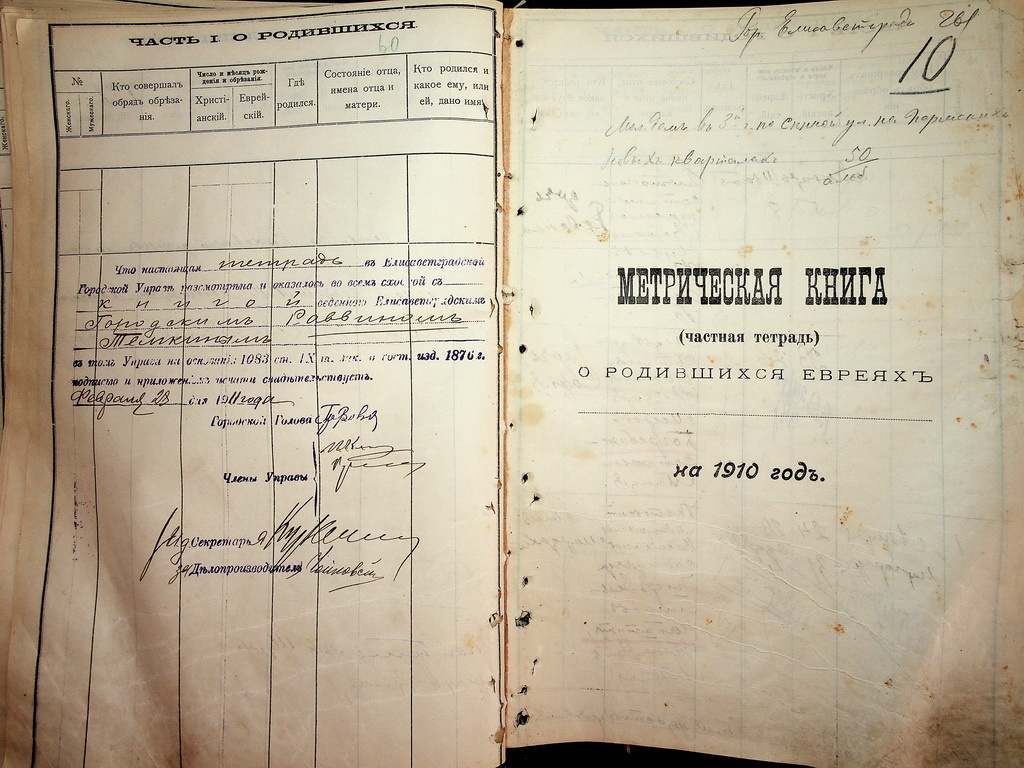 ЧАСТЬ I. О РОДИВШИХСЯ
60
№
Женскаго.
Мужескаго.
Кто совершалъ обрядъ обрѣзанія.
Число и мѣсяцъ рожденія и обрѣзанія.
Христіанскій.
Еврейскій.
Гдѣ родился.
Состояніе отца, имена отца и матери.
Кто родился и какое ему, или ей, дано имя
Что настоящая тетрадь въ Елисаветградской
Городской Управѣ разсмотрѣна и оказалось во всемъ сходной съ
книгой веденною Елисаветградскимъ
Городскимъ Раввиномъ
Темкинымъ
въ томъ Управа на основан. 1083 ст. IX т. зак. о сост. изд. 1876 г.
подписью и приложен. печати свидѣтельствуетъ.
Февраля 28 дня 1911 года
Городской Голова
Члены Управы
Секретарь
Дѣлопроизводитель
Гор. Елисаветграда 261
10
въ 3й ул. на
кварталахъ 50
МЕТРИЧЕСКАЯ КНИГА
(частная тетрадь)
О РОДИВШИХСЯ ЕВРЕЯХЪ
на 1910 годъ.